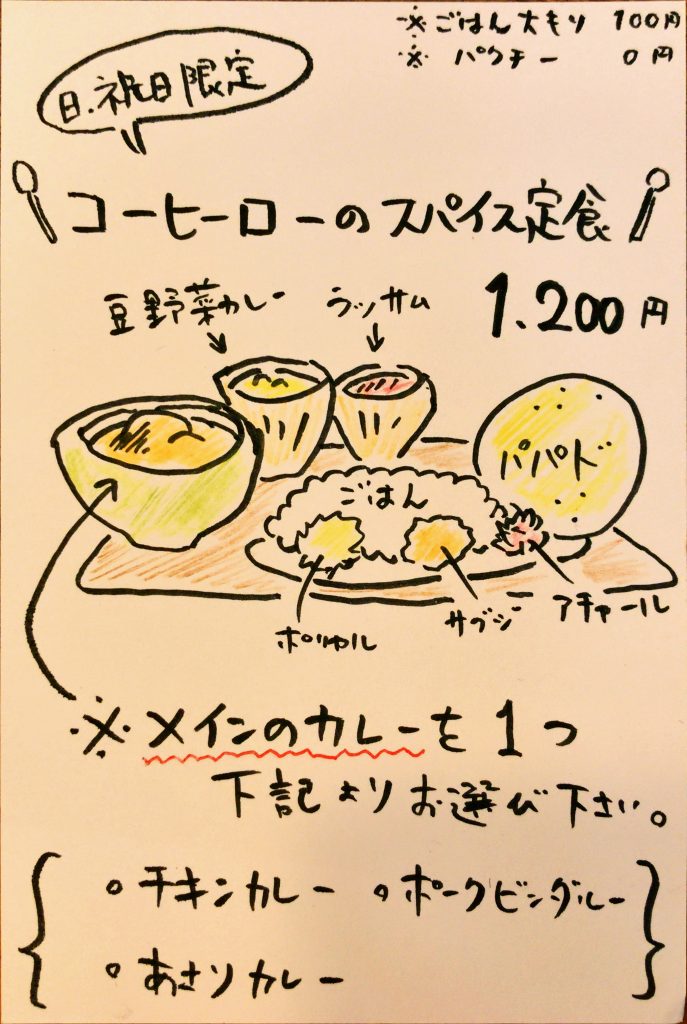 ※ごはん大モリ 100円
※ パクチー 0円
日.祝日限定
コーヒーローのスパイス定食
1.200円
豆野菜カレー
ラッサム
パパド
ごはん
ポリヤル
サブジ
アチャール
※メインのカレーを1つ
下記よりお選び下さい。
○チキンカレー ○ポークビンダルー
○あさりカレー